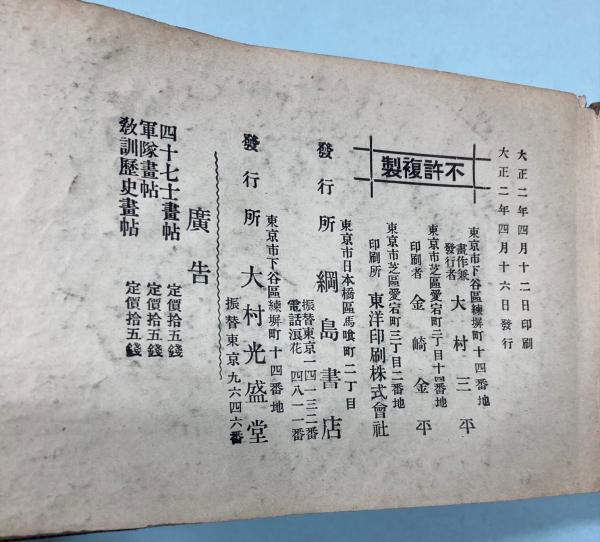 大正二年四月十二日印刷
大正二年四月十六日發行
不許複製
東京市下谷區練塀町十四番地
畫作兼
發行者 大村三平
東京市芝區愛宕町三丁目十四番地
印刷者 金崎金平
東京市芝區愛宕町三丁目二番地
印刷所 東洋印刷株式會社
東京市日本橋區馬喰町二丁目
發行所 綱島書店
振替東京一四一三二番
電話浪花 四八一一番
東京市下谷區練塀町十四番地
發行所 大村光盛堂
振替東京九六四六番
廣告
四十七士畫帖 定價拾五錢
軍隊畫帖 定價拾五錢
敎訓歷史畫帖 定價拾五錢